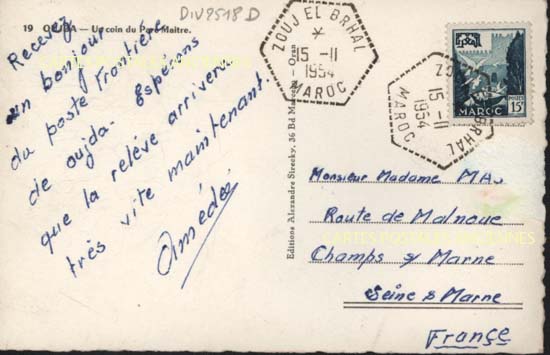 DIV9518 D
19 OUJDA — Un coin du Parc Maître.
Recevez
un bonjour
du poste frontière
de oujda. Espérons
que la relève arrivera
très vite maintenant.
Amédée
ZOUJ EL BRHAL
*
15 -11
1954
MAROC
BRHAL
15 -11
1954
MAROC
MAROC
POSTES
15F
Editions Alexandre Sirecky, 36 Bd Marceau - Oran
Monsieur Madame MA
Route de Malnoue
CARTES POSTALES ANCIENNES
Champs s/ Marne
Seine & Marne
France